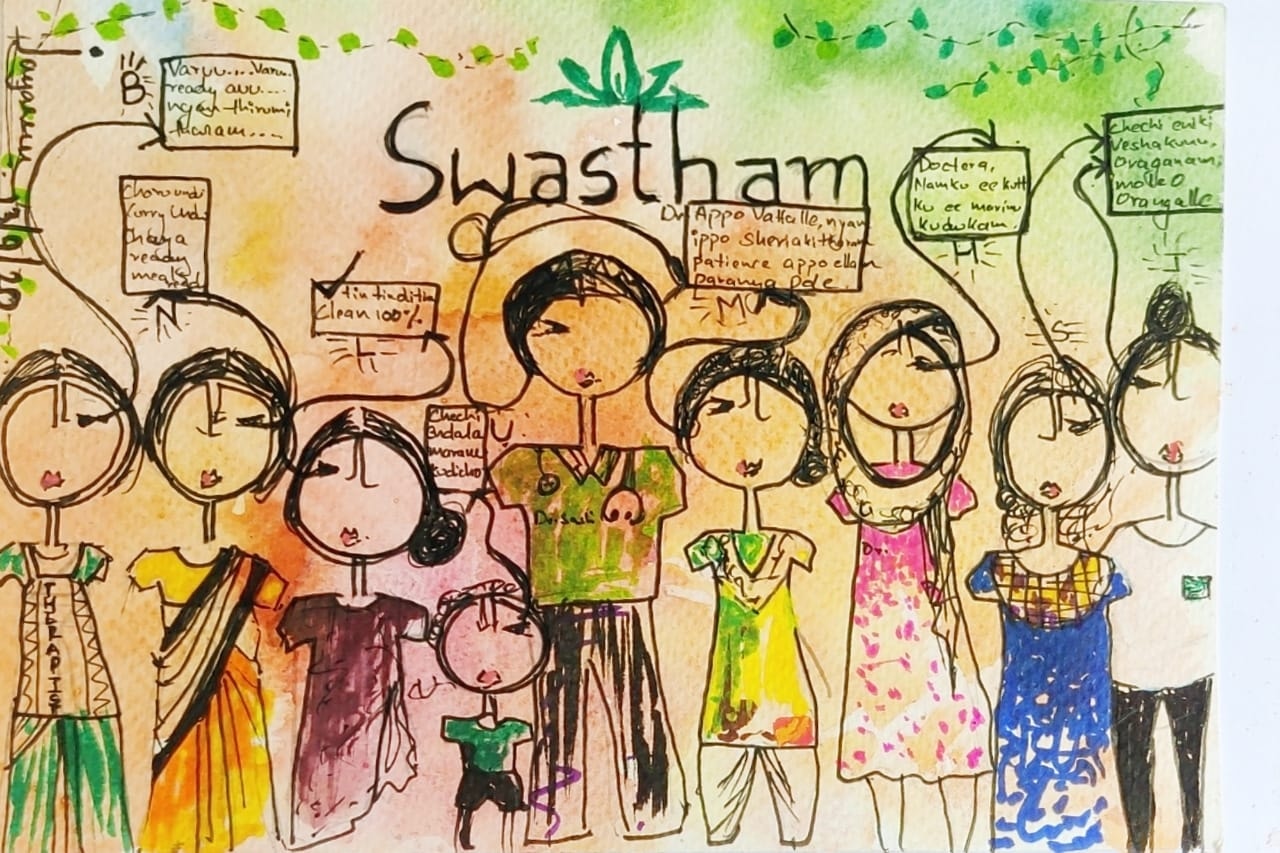 Swastham
B
Varuu....Varu..
ready avu....
ngan thirumi
tharam....
13/9/20
Chorundi
Curry Undi
Chaya
ready
N
tin tin ditin
Clean 100%
Chechi
kudicho
U
Dr Appo Vattalle, nyan
ippo sheriakitharam
patience appo ellam
paranja pole
M
Doctera,
Namku ee kutt
ku ee marinu
kudukam.
H
Chechi eniki
Veshakunu,
Oraganam,
molleO
Orangalle
S
I
THERAPIST
Dr.